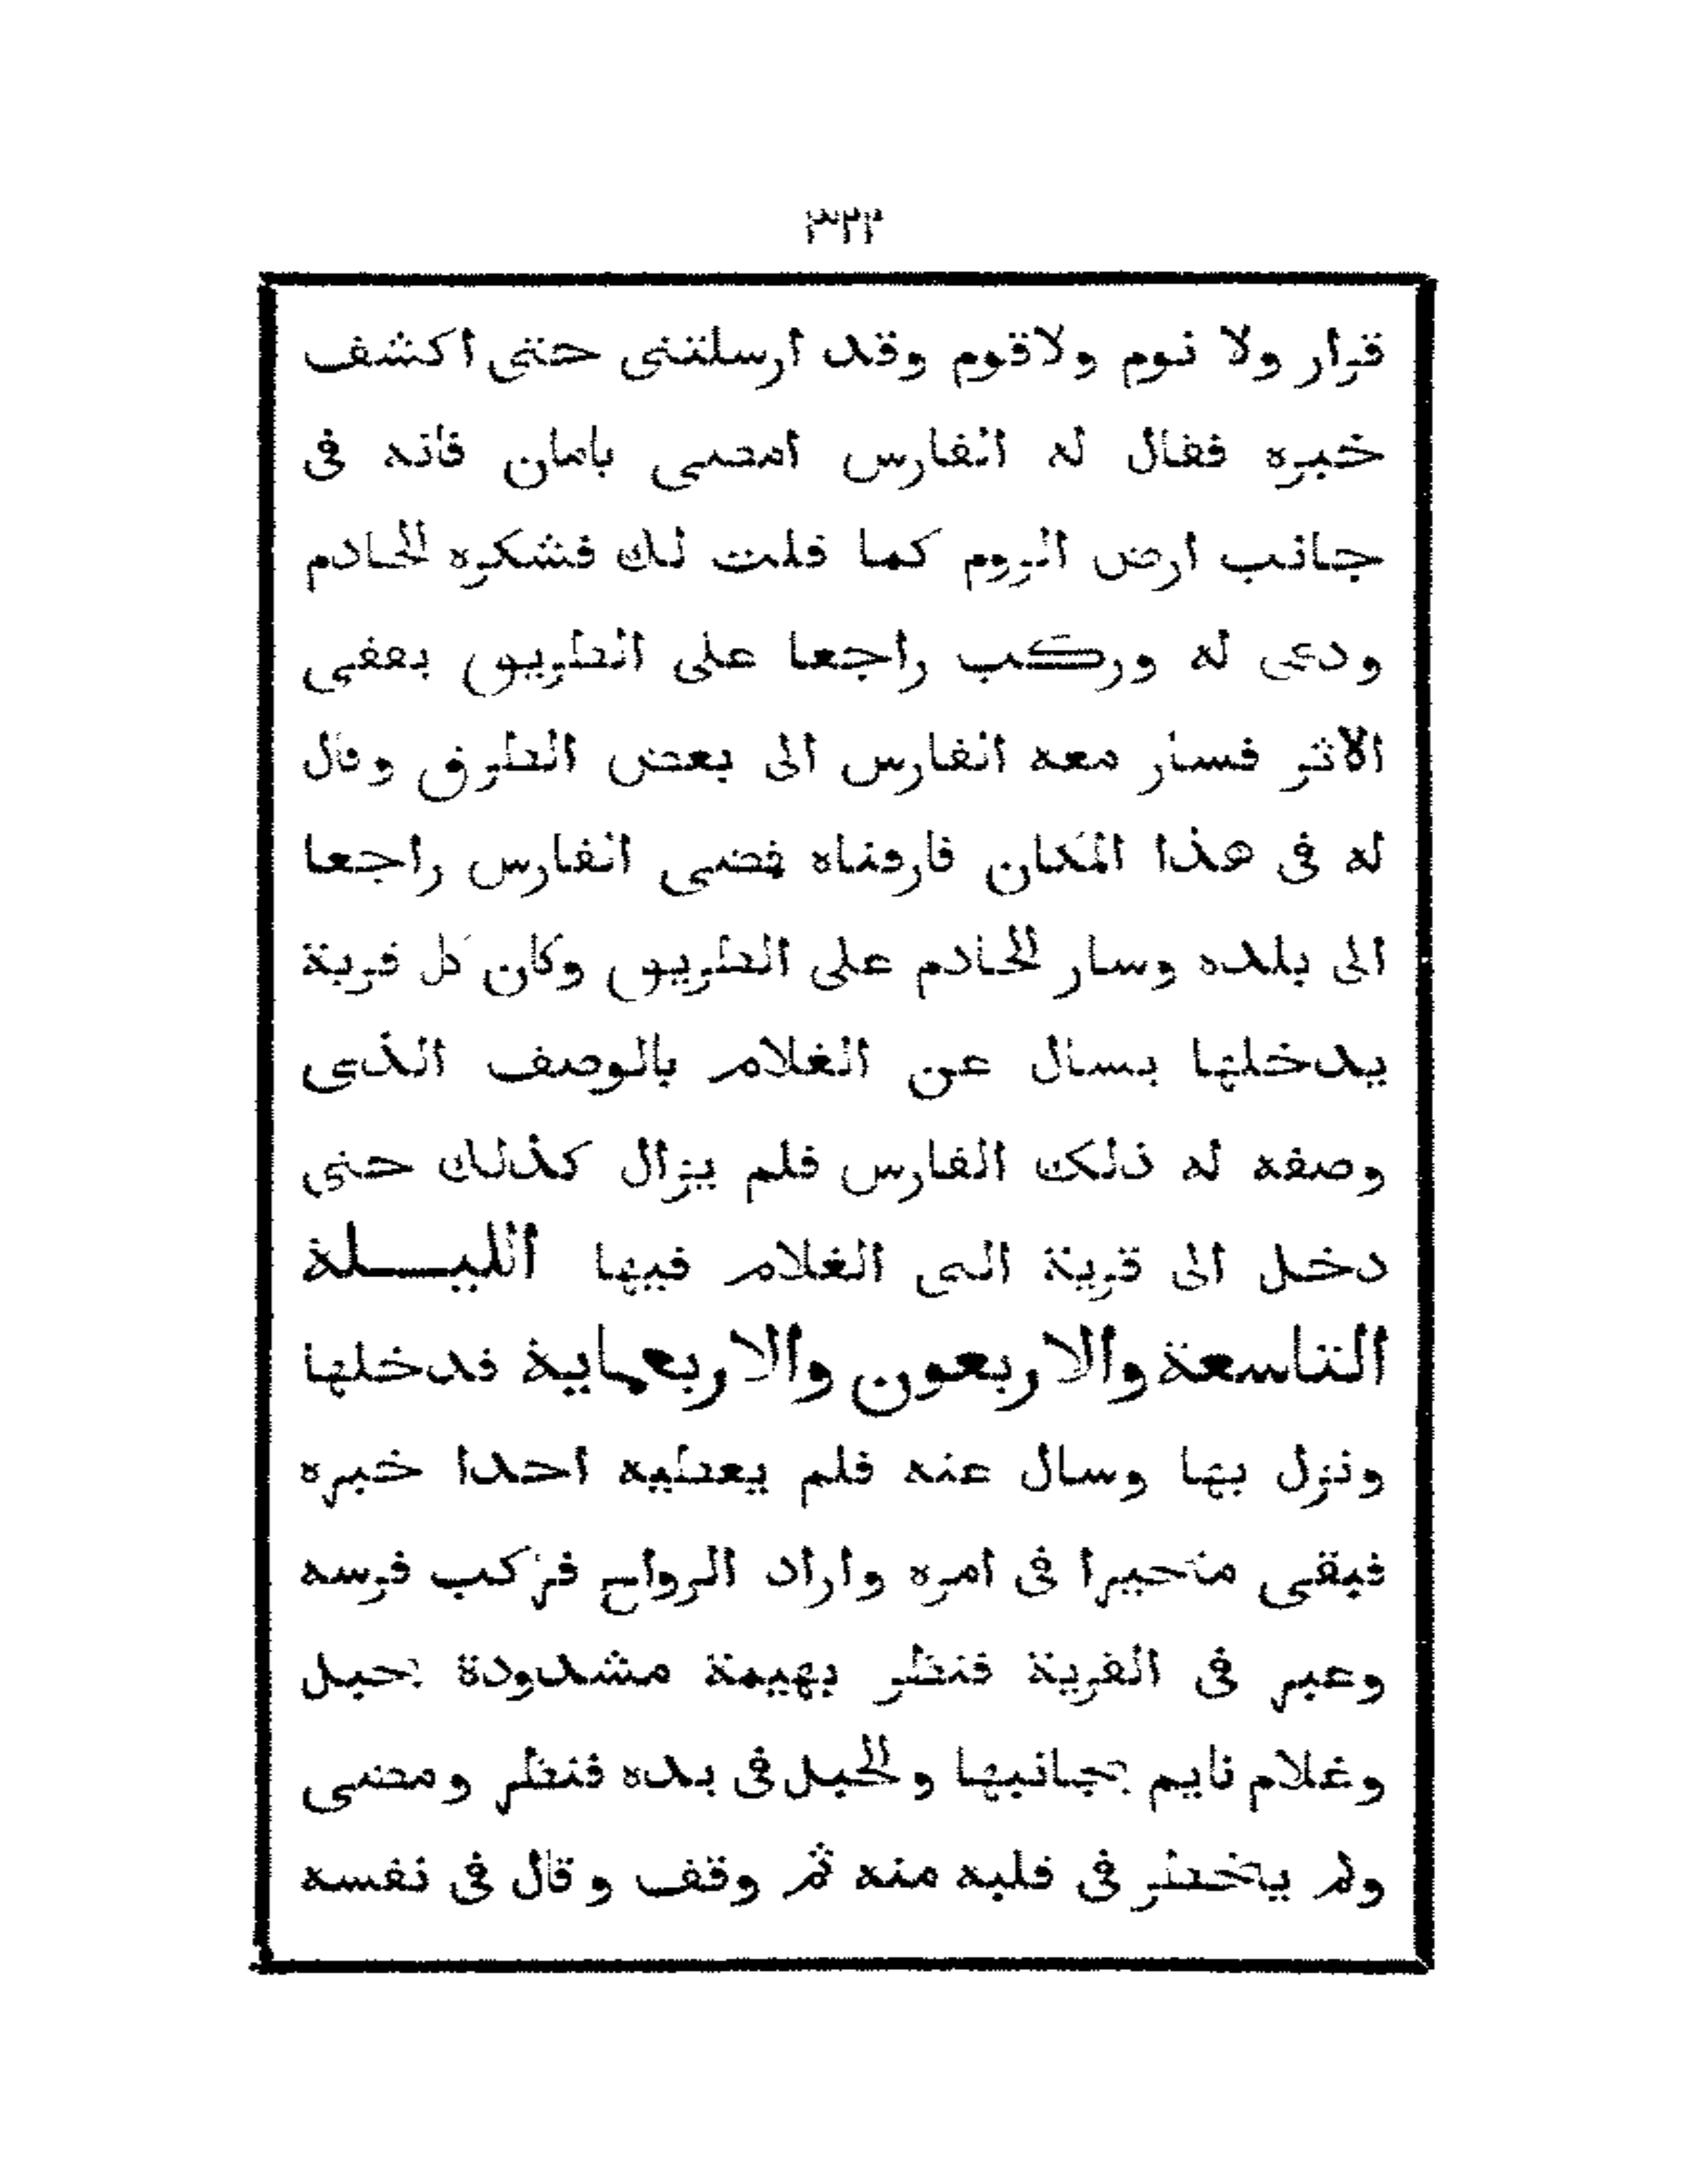 ٣٢٢
قرار ولا نوم ولاقوم وقد ارسلتنى حتى اكشف
خبره فقال له الفارس امضى بامان فانه فى
جانب ارض الروم كما قلت لك فشكره الخادم
ودعى له وركب راجعا على الطريق بقفى
الاثر فسار معه الفارس الى بعض الطرق وقال
له فى هذا المكان فارقناه فمضى الفارس راجعا
الى بلده وسار الخادم على الطريق وكان كل قرية
يدخلها يسال عن الغلام بالوصف الذى
وصفه له ذلك الفارس فلم يزال كذلك حتى
دخل الى قرية التى الغلام فيها الليلة
التاسعة والاربعون والاربعماية فدخلها
ونزل بها وسال عنه فلم يعطيه احدا خبره
فبقى متحيرا فى امره واراد الرواح فركب فرسه
وعبر فى القرية فنظر بهيمة مشدودة بحبل
وغلام نايم بجانبها والحبل فى يده فنظر ومضى
ولم يخطر فى قلبه منه ثم وقف وقال فى نفسه